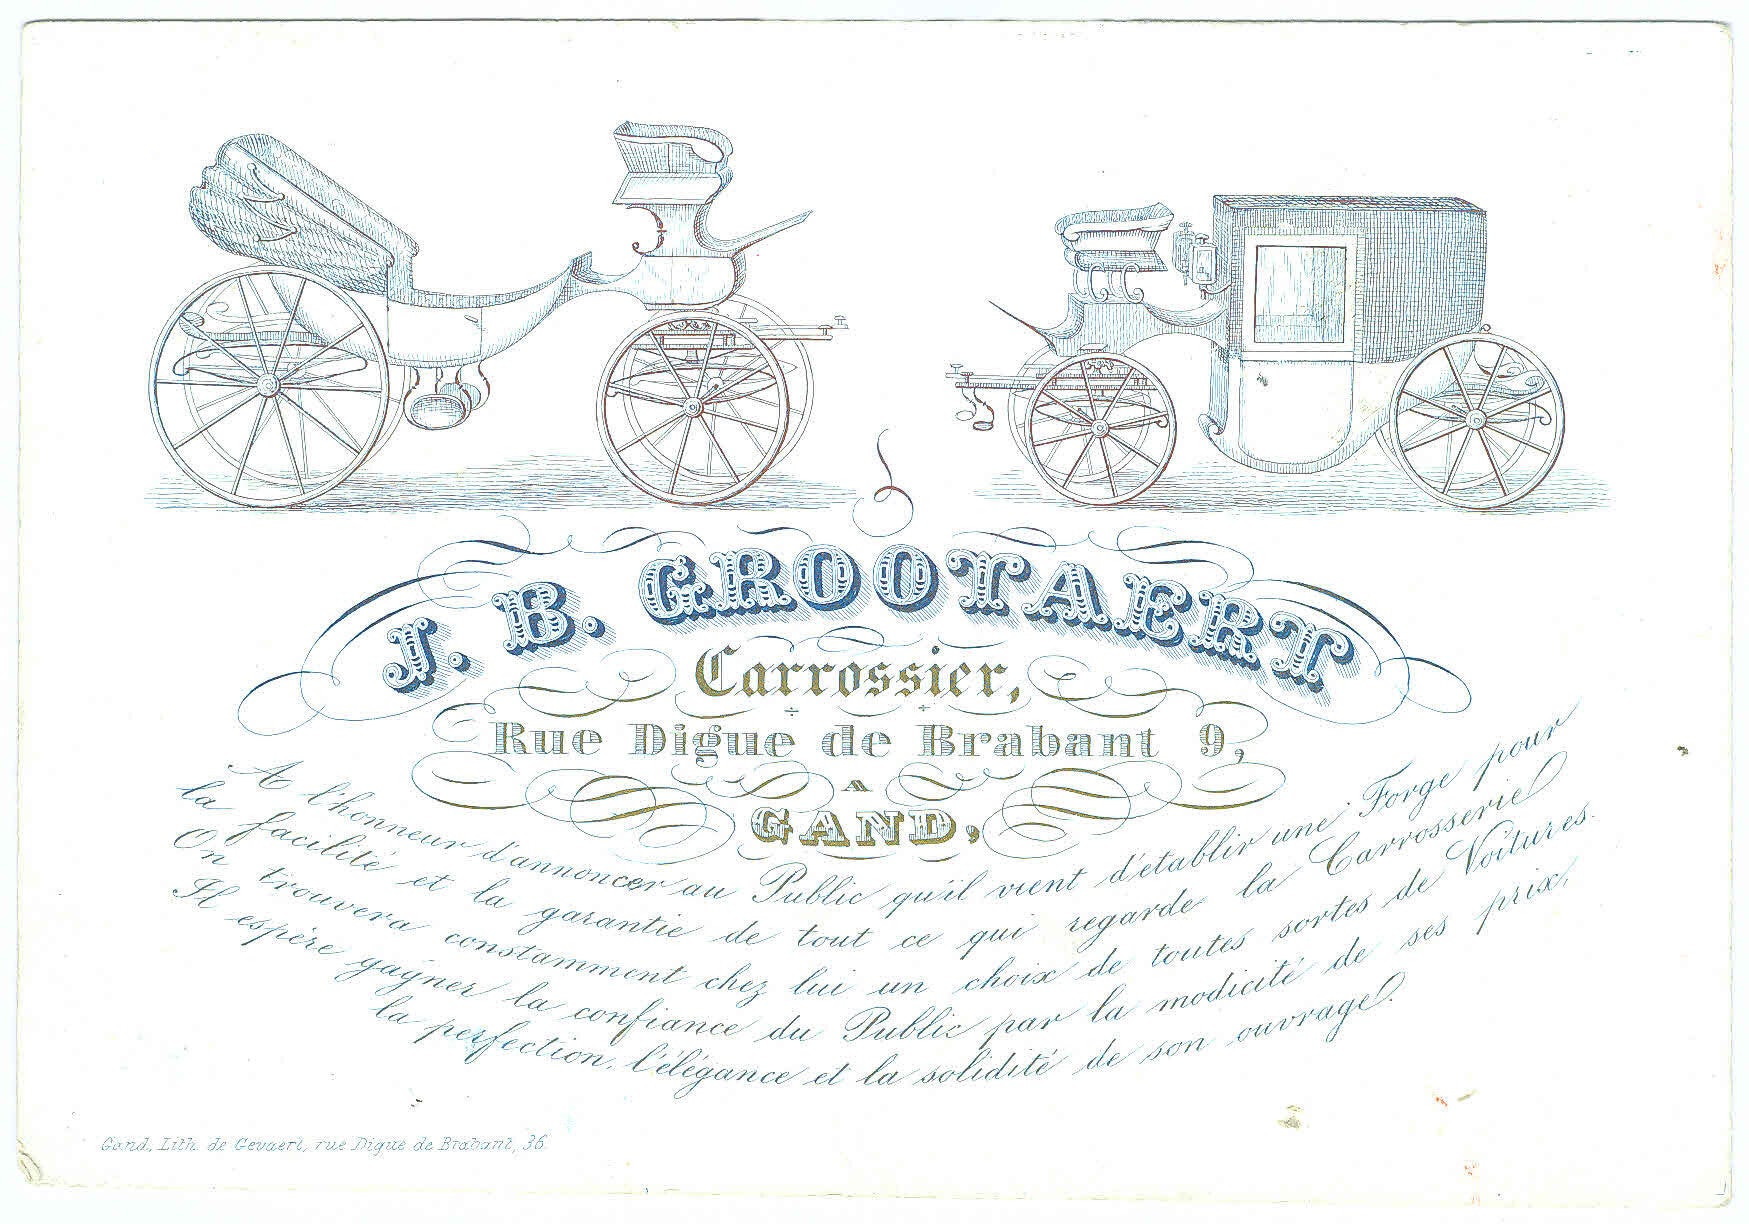 J. B. GROOTAERT
Carrossier,
Rue Digue de Brabant 9,
A
GAND,
A l'honneur d'annoncer au Public qu'il vient d'établir une Forge pour
la facilité et la garantie de tout ce qui regarde la Carrosserie
On trouvera constamment chez lui un choix de toutes sortes de Voitures.
Il espère gagner la confiance du Public par la modicité de ses prix,
la perfection, l'élégance et la solidité de son ouvrage.
Gand, Lith. de Gevaert, rue Digue de Brabant, 36.